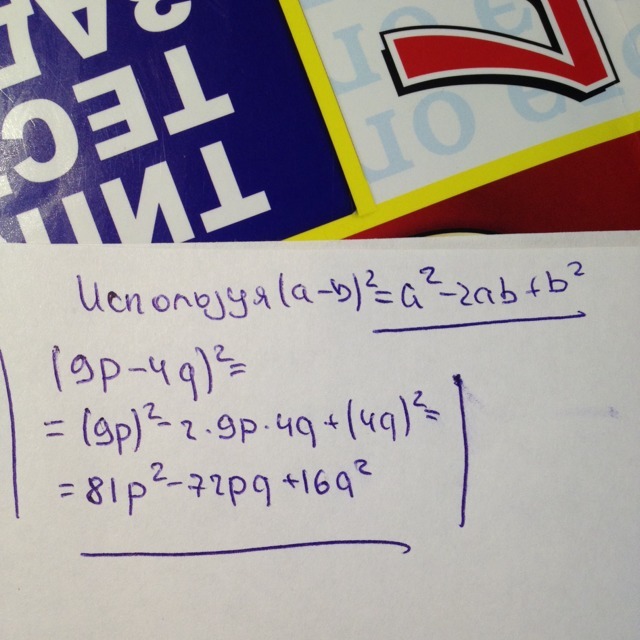 ТИП
ТЕС
ЗАД
7
Используя (a-b)²=a²-2ab+b²
(9p-4q)²=
=(9p)²-2·9p·4q+(4q)²=
=81p²-72pq+16q²